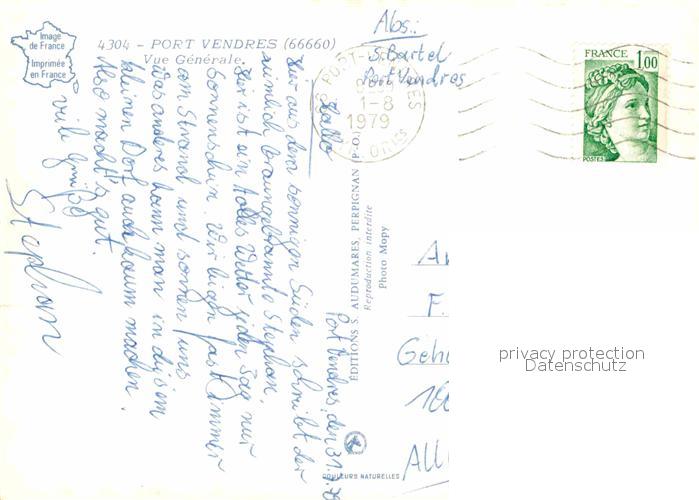 Image
de France
Imprimée
en France
4304 - PORT VENDRES (66660)
Vue Générale.
Abs.:
S. Bartel
Port Vendres
1-8
1979
FRANCE
1,00
POSTES
Port Vendres, den 31.7.
Hallo
Hier aus dem sonnigen Süden schreibt der
ziemlich braungebrannte Stephan.
Hier ist ein tolles Wetter jeden Tag nur
Sonnenschein. Wir liegen fast immer
am Strand und sonnen uns
was anderes kann man in diesem
kleinen Dorf auch kaum machen.
Also macht's gut.
viele Grüße
Stephan
EDITIONS S. AUDUMARES, PERPIGNAN (P.-O.)
Reproduction interdite
Photo Mopy
COULEURS NATURELLES
F.
Geh
100
ALL
privacy protection
Datenschutz